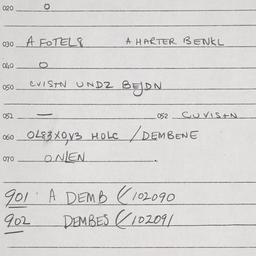 020 0
030 A FOTEL8 A HARTER BENKL
040 0
050 CVISTN UNDZ BEJDN
051 — 052 CUVISTN
060 0L83X0V3 HOLC / DEMBENE
070 ONLEN .
901 A DEMB (/102090
902 DEMBES (/102091